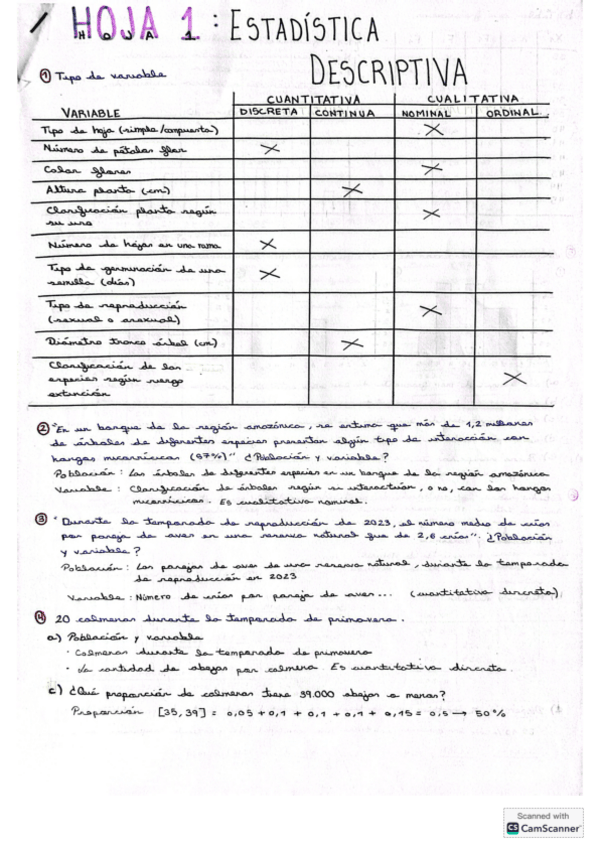 HOJA 1: ESTADÍSTICA
DESCRIPTIVA
① Tipo de variable
CUANTITATIVA CUALITATIVA
VARIABLE DISCRETA CONTINUA NOMINAL ORDINAL
Tipo de hoja (simple/compuesta) X
Número de pétalos flor X
Color flores X
Altura planta (cm) X
Clasificación planta según
su uso X
Número de hojas en una rama X
Tipo de germinación de una
semilla (días) X
Tipo de reproducción
(sexual o asexual) X
Diámetro tronco árbol (cm) X
Clasificación de las
especies según riesgo
extinción X
② "En un bosque de la región amazónica, se estima que más de 1,2 millones
de árboles de diferentes especies presentan algún tipo de interacción con
hongos micorrícicos (67%)" ¿Población y variable?
Población: Los árboles de diferentes especies en un bosque de la región amazónica
Variable: Clasificación de árboles según su interactúan, o no, con los hongos
micorrícicos. Es cualitativa nominal.
③ "Durante la temporada de reproducción de 2023, el número medio de crías
por pareja de aves en una reserva natural fue de 2,6 crías". ¿Población
y variable?
Población: Las parejas de aves de una reserva natural, durante la temporada
de reproducción en 2023
Variable: Número de crías por pareja de aves... (cuantitativa discreta)
④ 20 colmenas durante la temporada de primavera.
a) Población y variable
· Colmenas durante la temporada de primavera
· La cantidad de abejas por colmena. Es cuantitativa discreta.
c) ¿Qué proporción de colmenas tiene 39.000 abejas o menos?
Proporción [35, 39] = 0,05 + 0,1 + 0,1 + 0,1 + 0,15 = 0,5 → 50%
Scanned with
CS CamScanner